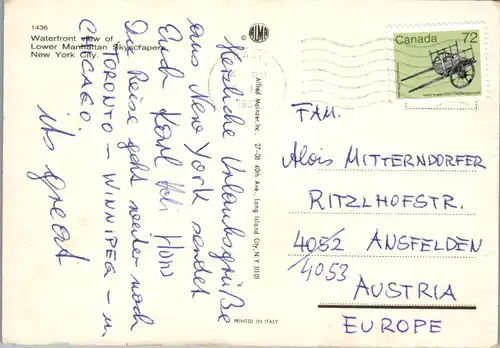 1436
Waterfront view of
Lower Manhattan Skyscrapers
New York City.
ALMA
Alfred Mainzer, Inc. 27-08 40th Ave., Long Island City, N.Y. 11101
PRINTED IN ITALY
Herzliche Urlaubsgrüße
aus New York sendet
Euch Karl
Die Reise geht weiter nach
TORONTO – WINNIPEG – u
CHICAGO.
its great
Canada 72
FAM.
Alois MITTERNDORFER
RITZLHOFSTR.
4052 ANSFELDEN
/4053
AUSTRIA
EUROPE